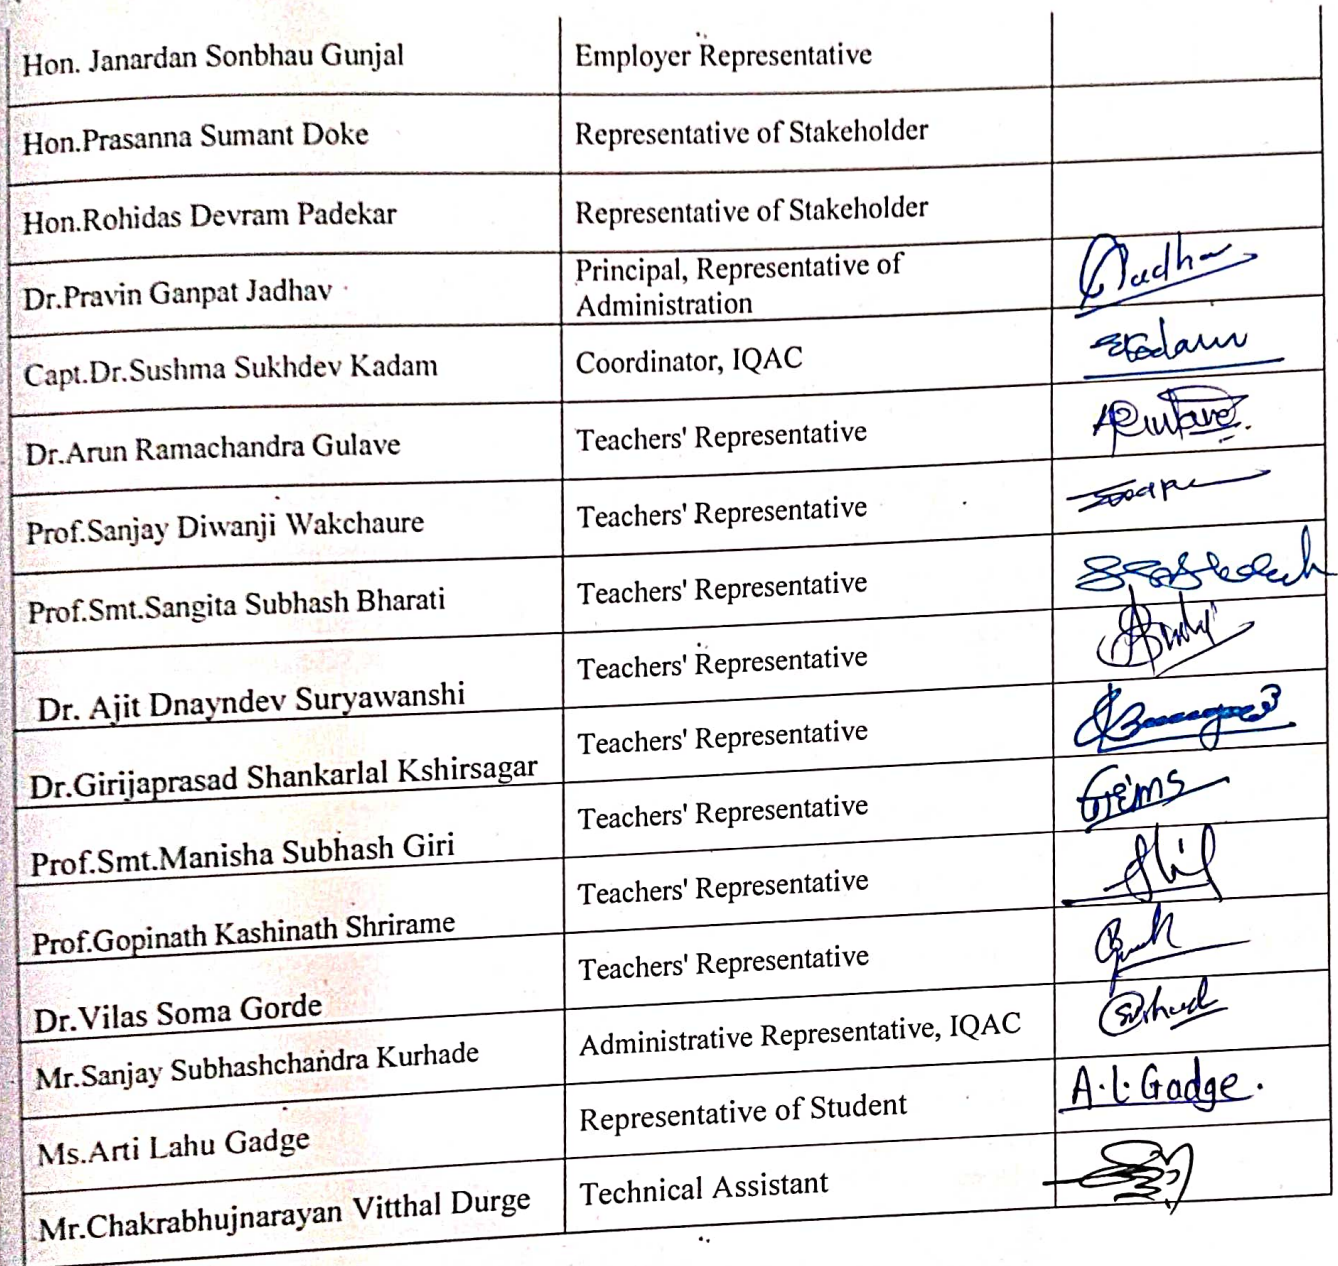 Hon. Janardan Sonbhau Gunjal Employer Representative
Hon.Prasanna Sumant Doke Representative of Stakeholder
Hon.Rohidas Devram Padekar Representative of Stakeholder
Dr.Pravin Ganpat Jadhav Principal, Representative of
Administration
Capt.Dr.Sushma Sukhdev Kadam Coordinator, IQAC
Dr.Arun Ramachandra Gulave Teachers' Representative
Prof.Sanjay Diwanji Wakchaure Teachers' Representative
Prof.Smt.Sangita Subhash Bharati Teachers' Representative
Dr. Ajit Dnayndev Suryawanshi Teachers' Representative
Dr.Girijaprasad Shankarlal Kshirsagar Teachers' Representative
Prof.Smt.Manisha Subhash Giri Teachers' Representative
Prof.Gopinath Kashinath Shrirame Teachers' Representative
Dr.Vilas Soma Gorde Teachers' Representative
Mr.Sanjay Subhashchandra Kurhade Administrative Representative, IQAC
Ms.Arti Lahu Gadge Representative of Student A.L.Gadge.
Mr.Chakrabhujnarayan Vitthal Durge Technical Assistant